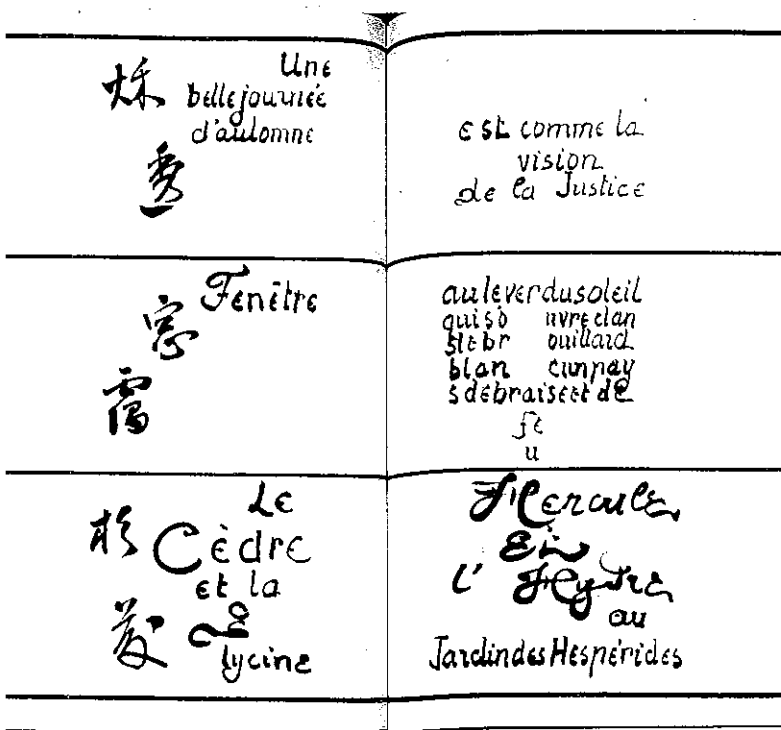 秌
Une
belle journée
d'automne
秀
est comme la
vision
de la Justice
Fenêtre
窓
auleverdusoleil
quiso uvredan
slebr ouillard
blan cunpay
sdebraiseetde
fe
u
杉
Le
Cèdre
et la
G
lycine
Hercule
Et
l' Hydre
au
JardindesHespérides